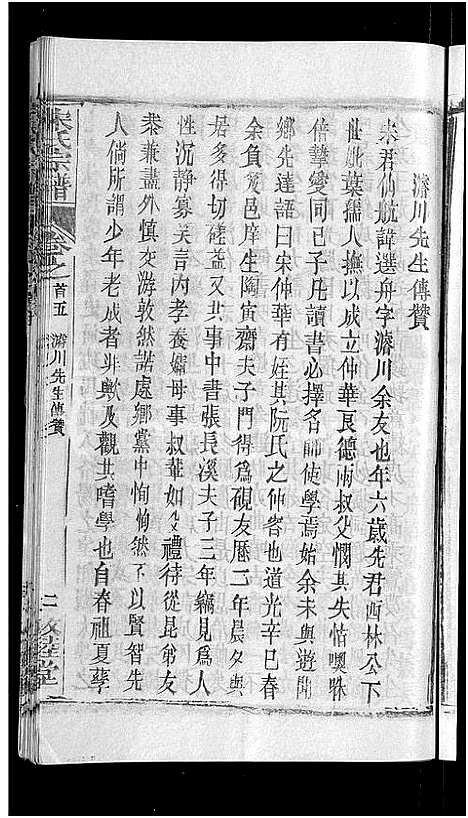 濬川先生傳贊
宋君仙航諱選舟字濬川余友也年六歲先君西林公下
世妣葉孺人撫以成立仲華艮德兩叔父憫其失怙噢咻
倍摯愛同已子凡讀書必擇名師使學焉始余未與遊聞
鄉先達語曰宋仲華有姪其阮氏之仲容也道光辛巳春
余負笈邑庠生陶寅齋夫子門得為硯友歷二年晨夕與
居多得切磋益又共事中書張長溪夫子三年竊見為人
性沉静寡关言内孝養孀母事叔輩如父禮待從昆弟友
恭兼盡外慎交游敦然諾處鄉黨中恂恂然不以賢智先
人倘所謂少年老成者非歟及觀其嗜學也自春徂夏孳
宋氏宗譜
卷之
首五
濬川先生傳贊
二